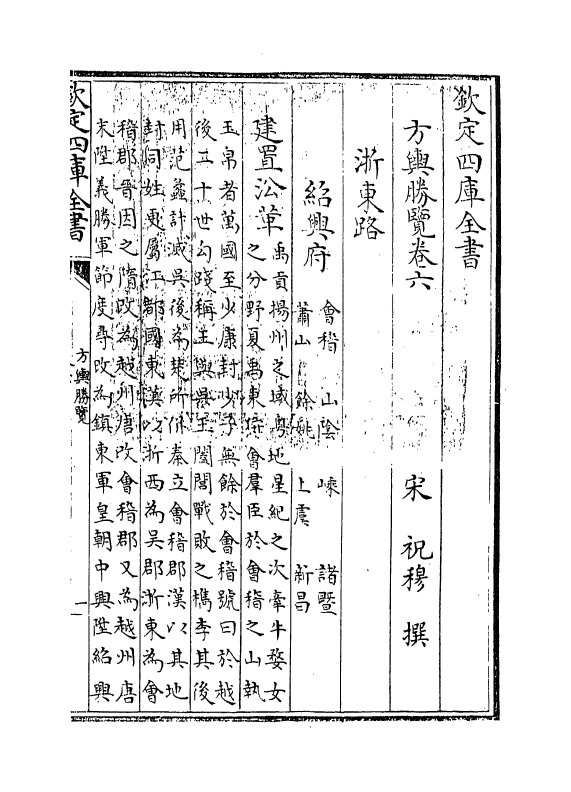 欽定四庫全書
方輿勝覽卷六
宋 祝穆 撰
浙東路
紹興府
會稽 山陰 嵊 諸暨
蕭山 餘姚 上虞 新昌
建置沿革
禹貢揚州之域粤地星紀之次牽牛婺女
之分野夏禹東廵會羣臣於會稽之山執
玉帛者萬國至少康封少子無餘於會稽號曰於越
後二十世勾踐稱王與吳王闔閭戰敗之檇李其後
用范蠡計滅吳後為楚所併秦立會稽郡漢以其地
封同姓更屬江都國東漢以浙西為吳郡浙東為會
稽郡晉因之隋改為越州唐改會稽郡又為越州唐
末陞義勝軍節度尋改為鎮東軍皇朝中興陞紹興
欽定四庫全書
方輿勝覽
一